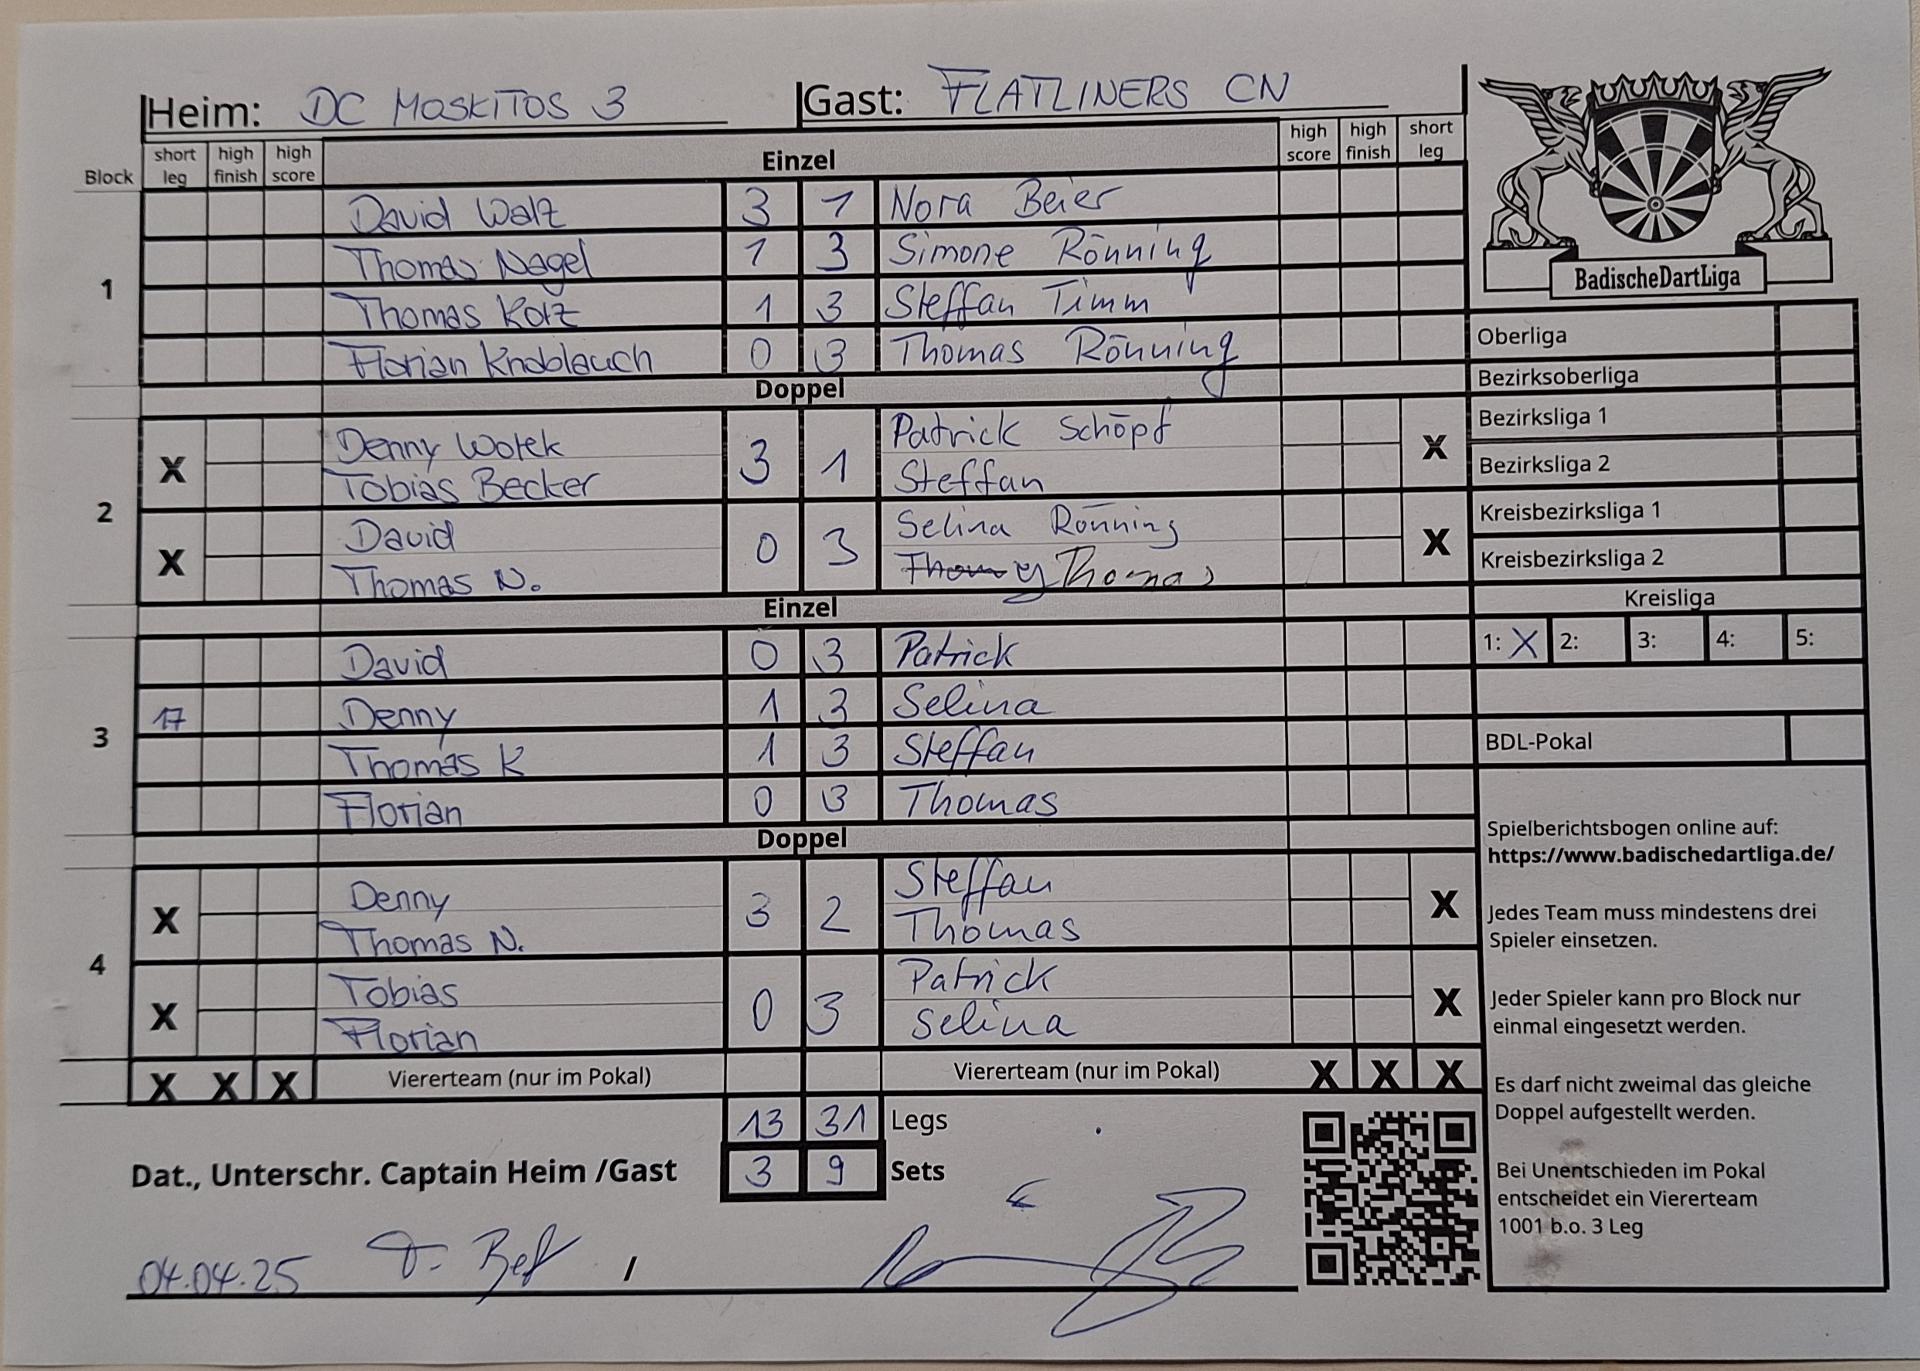 Heim: DC MOSKITOS 3 Gast: FLATLINERS CN
Block short leg high finish high score Einzel high score high finish short leg
1
David Walz 3 1 Nora Beier
Thomas Nagel 1 3 Simone Rönning
Thomas Kotz 1 3 Steffan Timm
Florian Knoblauch 0 3 Thomas Rönning
Doppel
2
X Denny Wotek 3 1 Patrick Schöpf X
Tobias Becker Steffan
X David 0 3 Selina Rönning X
Thomas N. Thomas
Einzel
3
David 0 3 Patrick
17 Denny 1 3 Selina
Thomas K 1 3 Steffan
Florian 0 3 Thomas
Doppel
4
X Denny 3 2 Steffan X
Thomas N. Thomas
X Tobias 0 3 Patrick X
Florian Selina
X X X Viererteam (nur im Pokal) Viererteam (nur im Pokal) X X X
13 31 Legs
Dat., Unterschr. Captain Heim /Gast 3 9 Sets
04.04.25 /
BadischeDartLiga
Oberliga
Bezirksoberliga
Bezirksliga 1
Bezirksliga 2
Kreisbezirksliga 1
Kreisbezirksliga 2
Kreisliga
1: X 2: 3: 4: 5:
BDL-Pokal
Spielberichtsbogen online auf:
https://www.badischedartliga.de/
Jedes Team muss mindestens drei
Spieler einsetzen.
Jeder Spieler kann pro Block nur
einmal eingesetzt werden.
Es darf nicht zweimal das gleiche
Doppel aufgestellt werden.
Bei Unentschieden im Pokal
entscheidet ein Viererteam
1001 b.o. 3 Leg